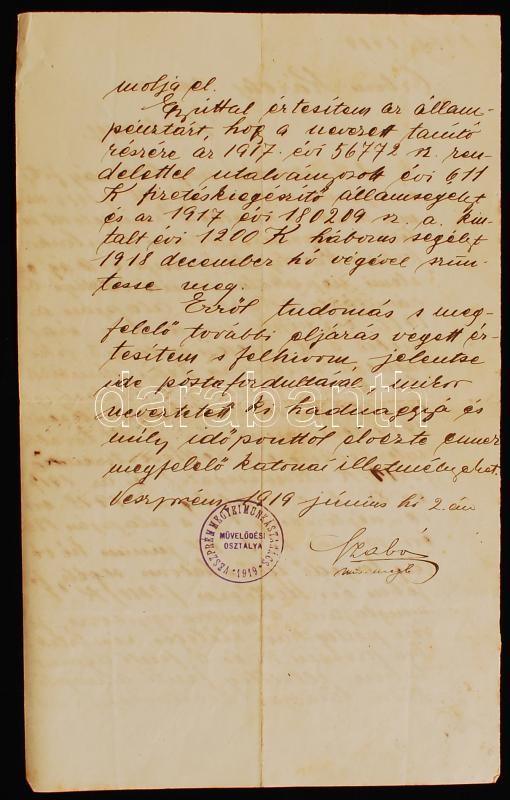 molja el.
Ez úttal értesítem az állam-
pénztárt, hogy a nevezett tanító
részére az 1917. évi 56772 sz. ren-
delettel utalványozott évi 611
K fizetéskiegészítő államsegélyt
és az 1917 évi 180209 sz. a. kiu-
talt évi 1200 K háborús segélyt
1918 december hó végével szün-
tesse meg.
Erről tudomás s meg-
felelő további eljárás végett ér-
tesítem s felhívom, jelentse
ide postafordultával, mikor
neveztetett ki hadnaggyá és
mily időponttól élvezte ennek
megfelelő katonai illetményeket.
Veszprém, 1919 június hó 2.án
Szabó
VESZPRÉMMEGYEI MUNKÁSTANÁCS
MŰVELŐDÉSI
OSZTÁLYA
1919
darabanth